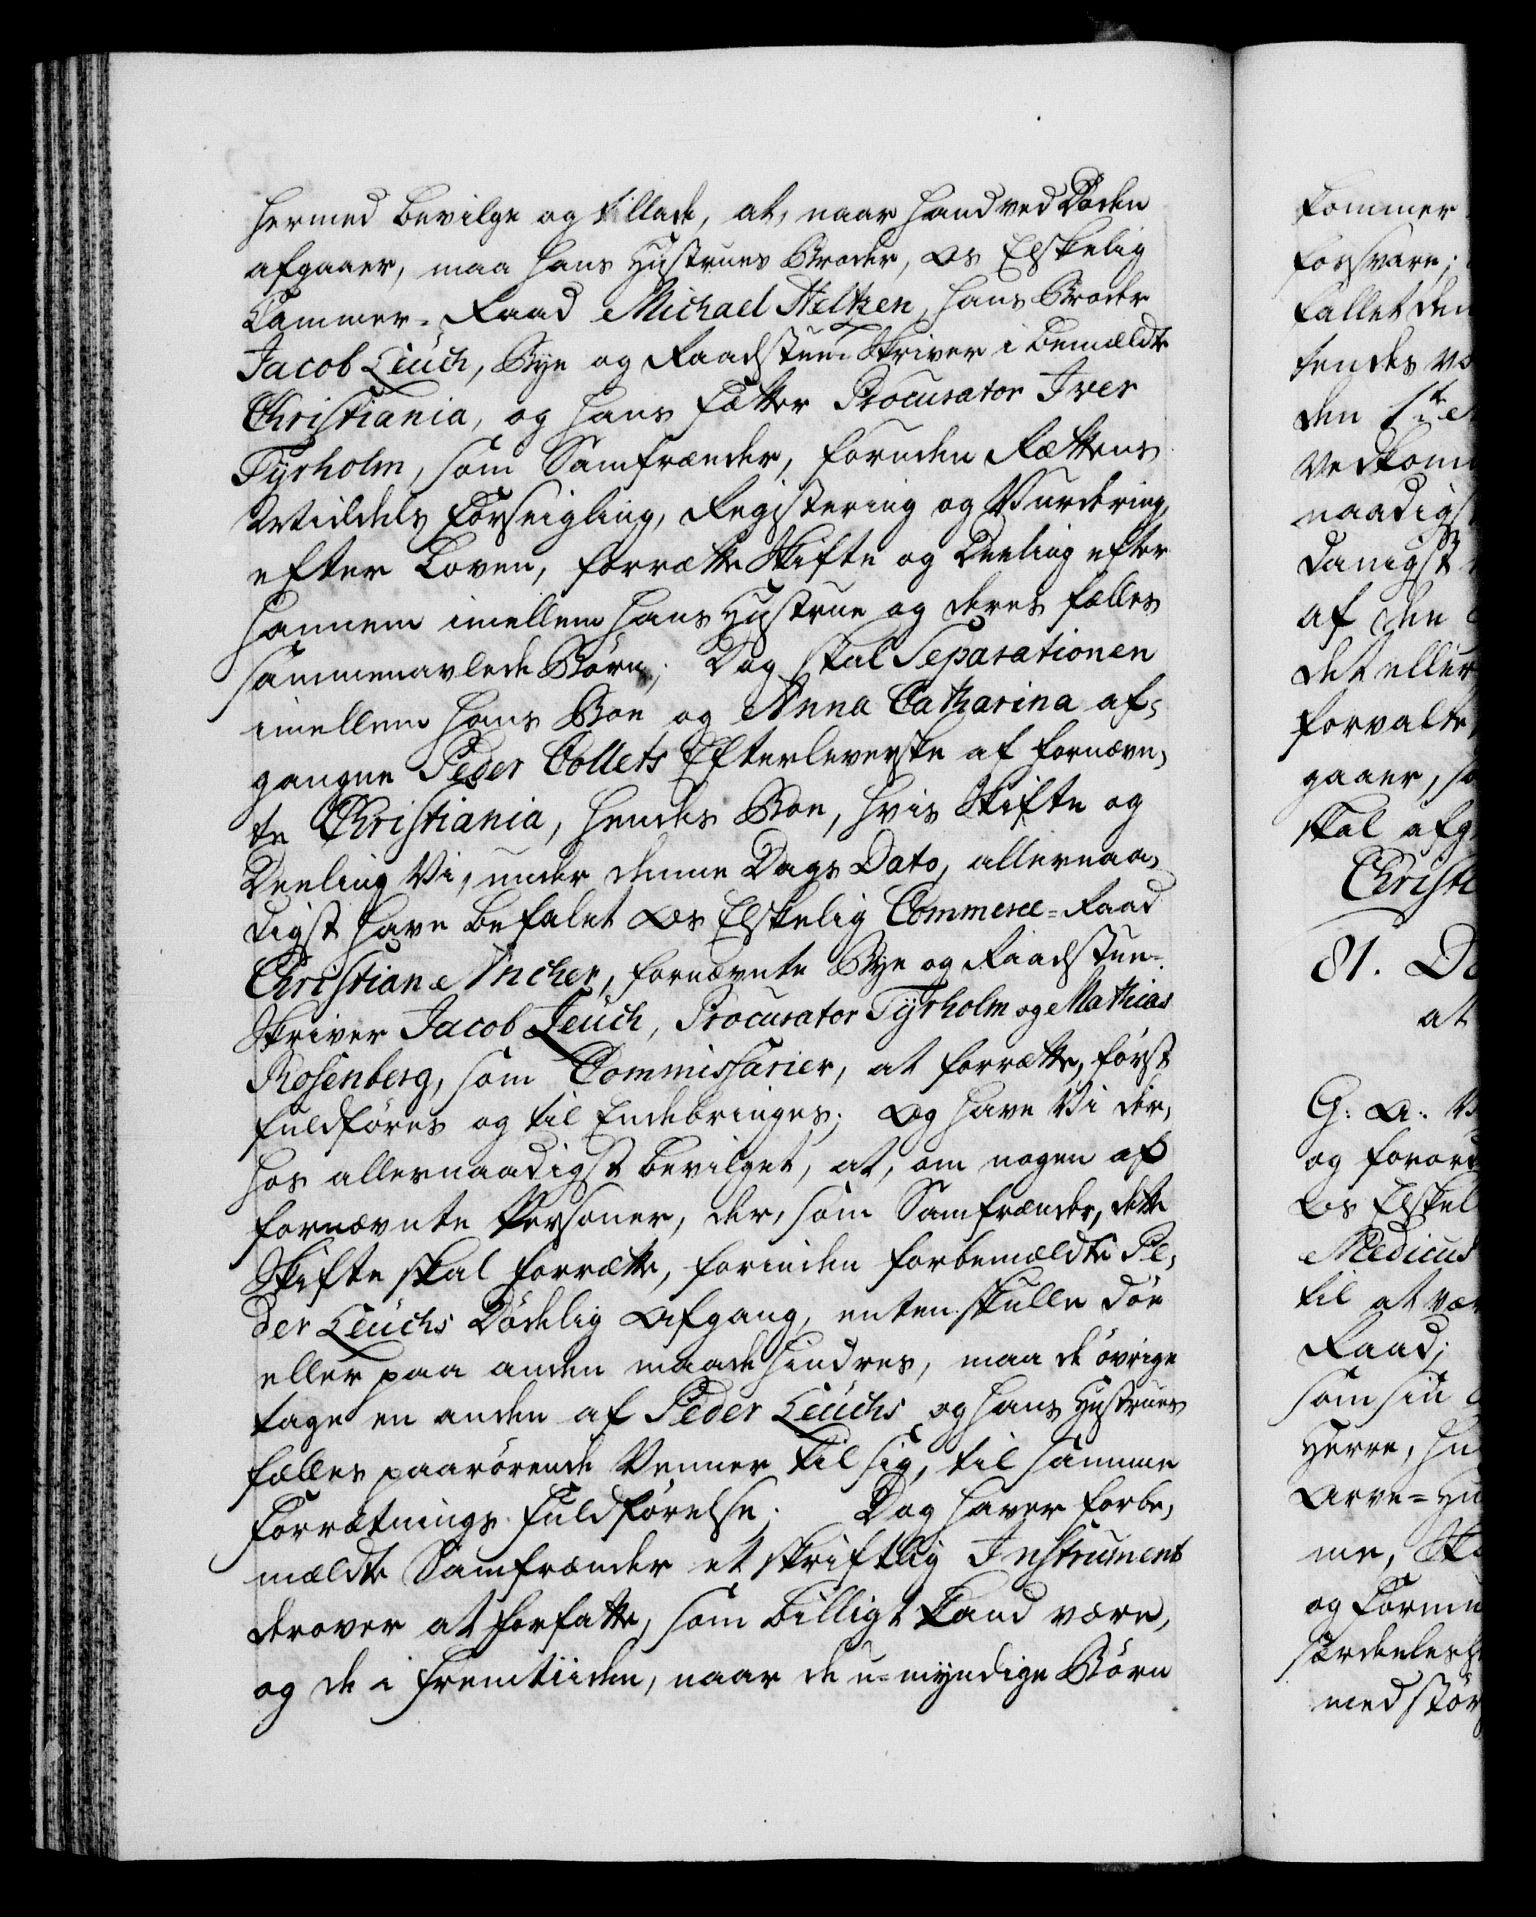 hermed bevilge og tillade, at, naar hand ved Døden
afgaaer, maa hans Hustrues Broder, Os Elskelig
Cammer-Raad Michael Heltzen, hans Broder
Jacob Leüch, Bye og Raadstue-Skriver i bemældte
Christiania, og hans Fætter Procurator Iver
Tyrholm, som Samfrænder, foruden Rættens
Middels Forseigling, Registering og Vurdering,
efter Loven, forrætte Skifte og Deeling efter
hannem imellem hans Hustrue og deres fælles
sammenavlede Børn; Dog skal Separationen
imellem hans Boe og Anna Catharina af-
gangne Peder Collets Efterleverske af fornævn-
te Christiania, hendes Boe, hvis Skifte og
Deeling Vi, under denne Dags Dato, allernaa-
digst have befalet Os Elskelig Commerce-Raad
Christian Ancher, fornævnte Bye og Raadstue-
Skriver Jacob Leüch, Procurator Tyrholm og Mathias
Rosenberg, som Commissarier, at forrætte, først
fuldføres og til Endebringes; Og have Vi der-
hos allernaadigst bevilget, at, om nogen af
fornævnte Personer, der, som Samfrænder, dette
Skifte skal forrætte, forinden forbemældte Pe-
der Leüchs Dødelig Afgang, enten skulle døe
eller paa anden maade hindres, maa de øvrige
tage en anden af Peder Leüchs og hans Hustrues
fælles paarørende Venner til sig, til samme
Forrætnings Fuldførelse; Dog haver forbe-
mældte Samfrænder et skriftlig Instrument
derover at forfatte, som billigt kand være,
og de i Fremtiiden, naar de u-myndige Børn
kommer
forsvare;
kaldet den
tendes vo
den 1te
Vedkom
naadigs
danigst
af den
det eller
forvalte
gaaer, so
skal afg
Christi
81. D
at
G: A: V
og forord
Os Elskel
Medicus
til at vær
Raad;
som sin
Herre, hu
Arve-Hu
me, Sk
og Formu
særdeles
med stør